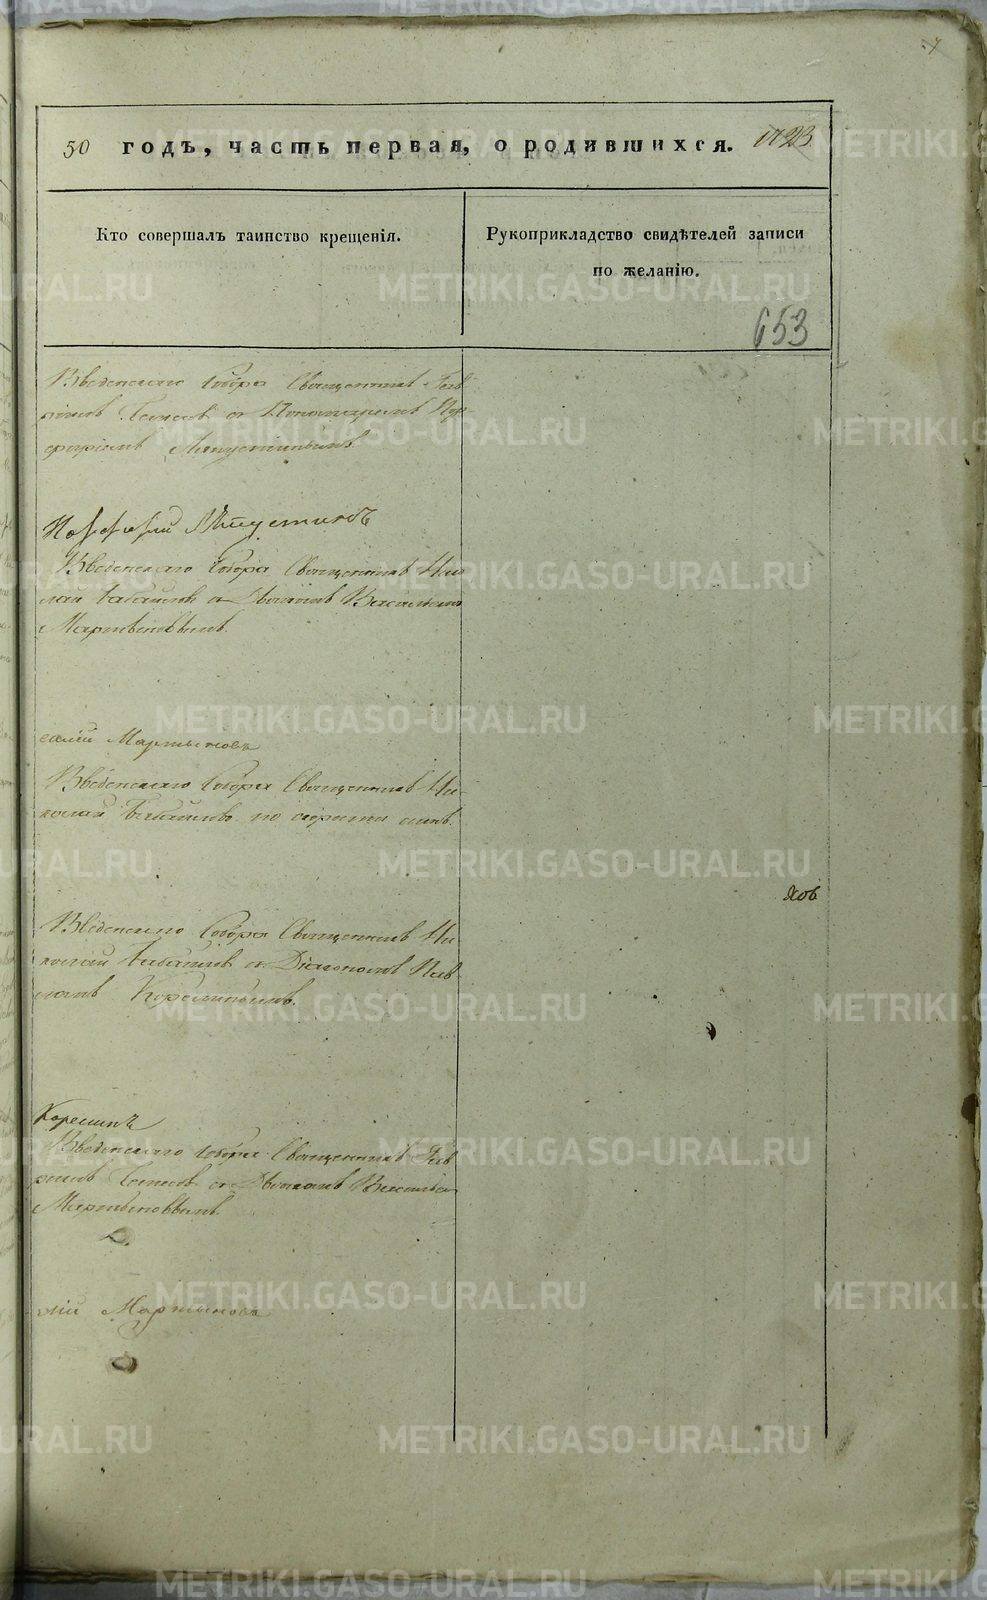 50 годъ, часть первая, о родившихся. 1123
Кто совершалъ таинство крещенія.
Рукоприкладство свидѣтелей записи
по желанію.
653
Введенскаго Собора Священникъ Гав
съ Пономаремъ Пор-
фиріемъ Мишустинымъ.
Порфирій Мишустинъ
Введенскаго Собора Священникъ Ни
колай Бабайловъ съ Дьякономъ Васильемъ
Мартыновымъ.
силій Мартыновъ
Введенскаго Собора Священникъ Ни-
колай Бабайловъ по скорости единъ.
Введенскаго Собора Священникъ Ни-
колай Бабайловъ съ Діакономъ Пав
ломъ Корелинымъ.
Корелинъ
Введенскаго Собора Священникъ Гав
съ Дьякономъ Васильемъ
Мартыновымъ.
лій Мартыновъ
METRIKI.GASO-URAL.RU